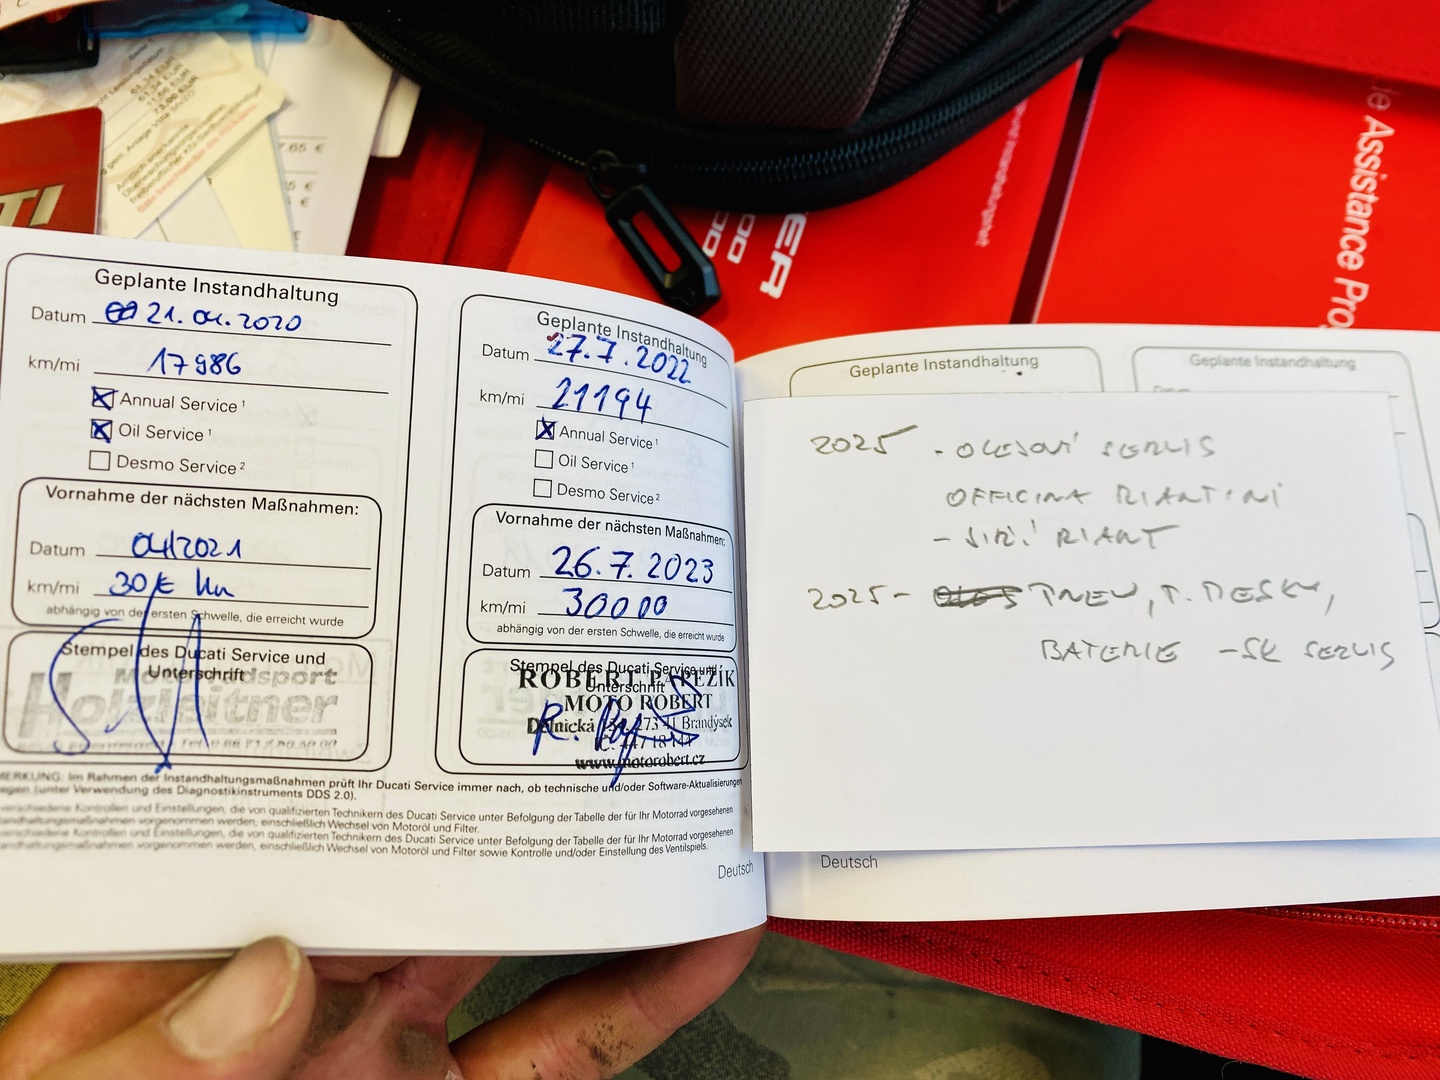 Geplante Instandhaltung
Datum 21.04.2020
km/mi 17986
Annual Service ¹
Oil Service ¹
Desmo Service ²
Vornahme der nächsten Maßnahmen:
Datum 04/2021
km/mi
abhängig von der ersten Schwelle, die erreicht wurde
Stempel des Ducati Service und
Unterschrift
Holzleitner
Geplante Instandhaltung
Datum 27.7.2022
km/mi 21194
Annual Service ¹
Oil Service ¹
Desmo Service ²
Vornahme der nächsten Maßnahmen:
Datum 26.7.2023
km/mi 30000
abhängig von der ersten Schwelle, die erreicht wurde
Stempel des Ducati Service und
Unterschrift
ROBERT PAPEŽÍK
MOTO ROBERT
Brandýsek
www.motorobert.cz
Im Rahmen der Instandhaltungsmaßnahmen prüft Ihr Ducati Service immer nach, ob technische und/oder Software-Aktualisierungen
(unter Verwendung des Diagnostikinstruments DDS 2.0).
Kontrollen und Einstellungen, die von qualifizierten Technikern des Ducati Service unter Befolgung der Tabelle der für Ihr Motorrad vorgesehenen
vorgenommen werden, einschließlich Wechsel von Motoröl und Filter.
Kontrollen und Einstellungen, die von qualifizierten Technikern des Ducati Service unter Befolgung der Tabelle der für Ihr Motorrad vorgesehenen
vorgenommen werden, einschließlich Wechsel von Motoröl und Filter sowie Kontrolle und/oder Einstellung des Ventilspiels.
Deutsch
Geplante Instandhaltung
Geplante Instandhaltung
2025 - OLEJOVÍ SERVIS
OFFICINA
2025 -
BATERIE - SK SERVIS
Deutsch
Assistance